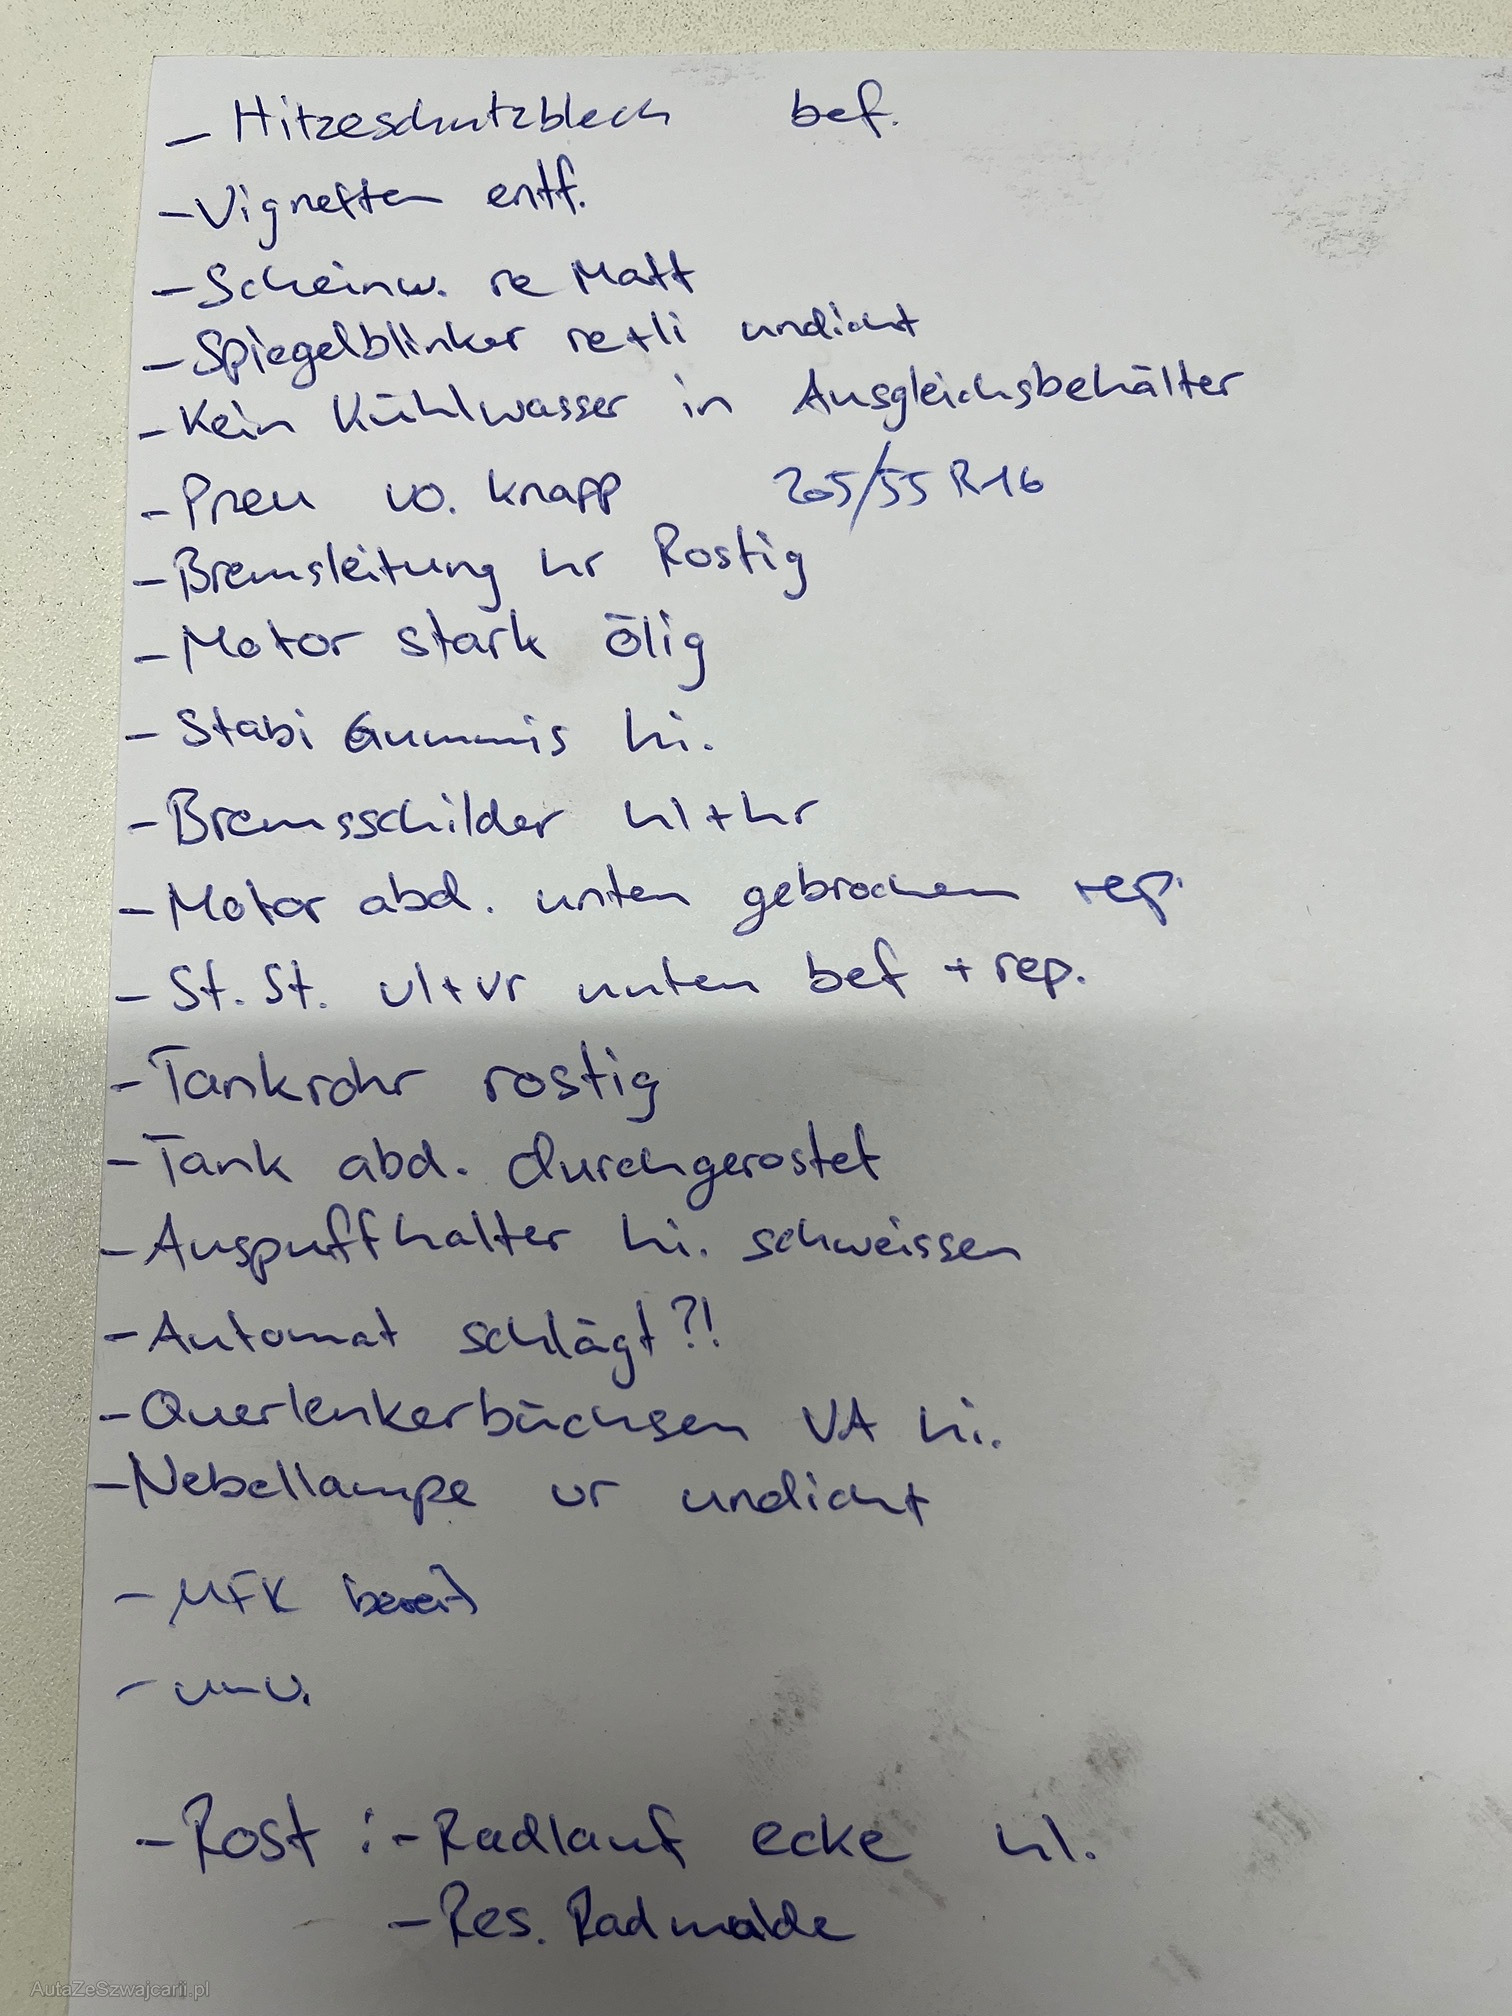 - Hitzeschutzblech bef.
- Vignetten entf.
- Scheinw. re Matt
- Spiegelblinker re+li undicht
- Kein Kühlwasser in Ausgleichsbehälter
- Pneu vo. knapp 205/55 R16
- Bremsleitung hr Rostig
- Motor stark ölig
- Stabi Gummis hi.
- Bremsschilder hl+hr
- Motor abd. unten gebrochen rep.
- St. St. vl+vr unten bef + rep.
- Tankrohr rostig
- Tank abd. durchgerostet
- Auspuffhalter hi. schweissen
- Automat schlägt?!
- Querlenkerbüchsen VA hi.
- Nebellampe vr undicht
- MFK bereit
- Rost : - Radlauf ecke hl.
- Res. Radmulde
AutaZeSzwajcarii.pl